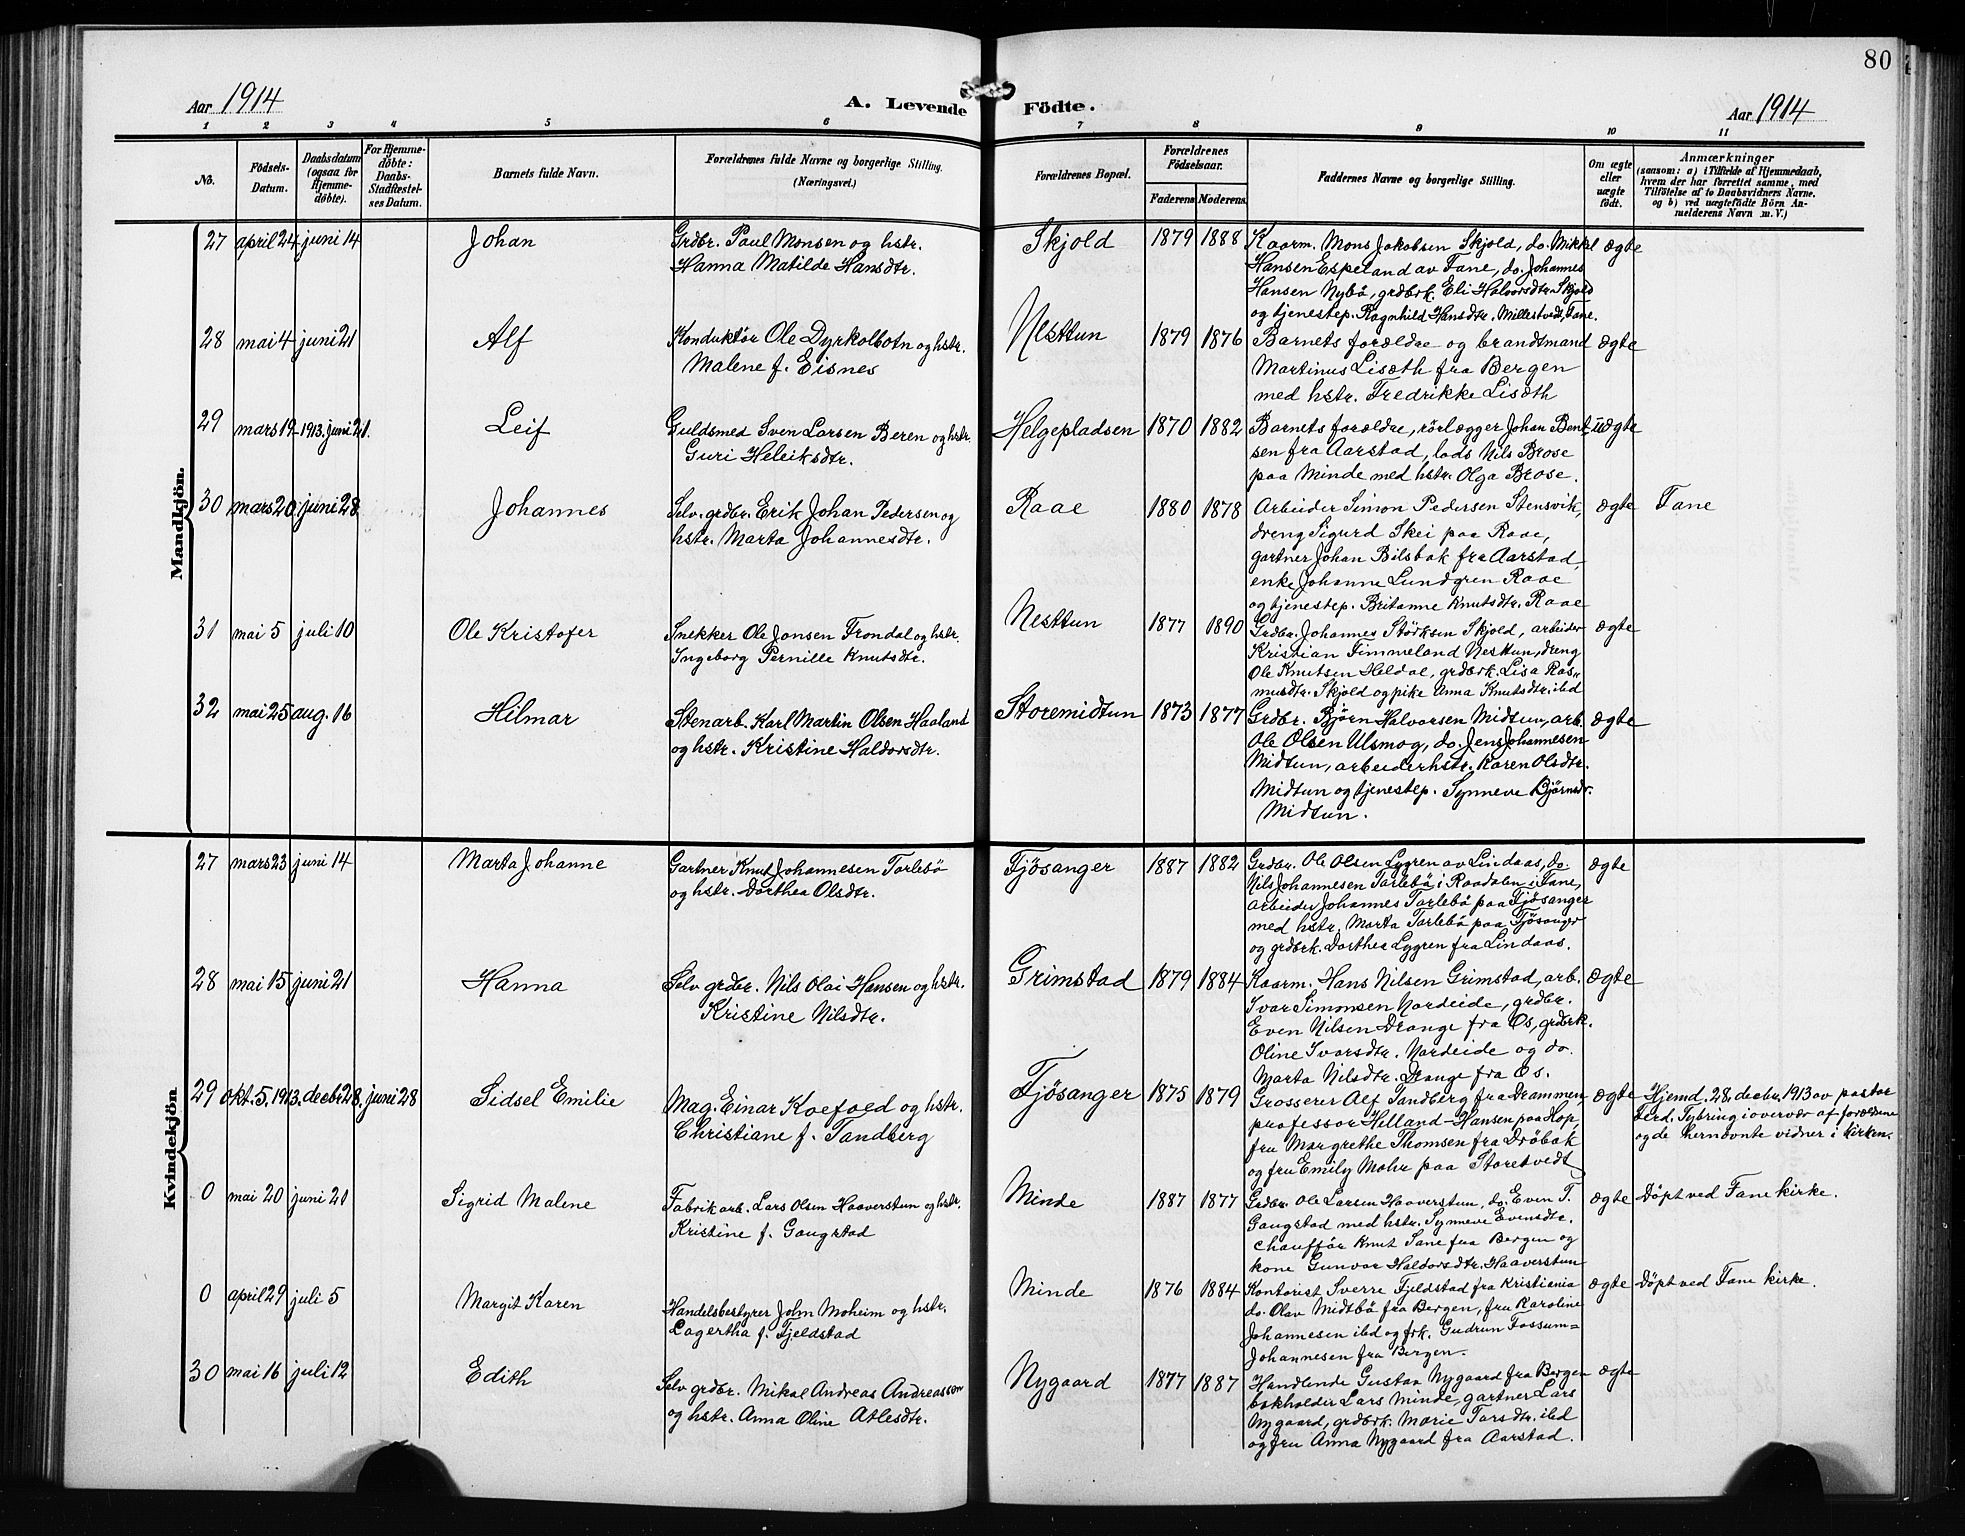 80
Aar 1914
A. Levende Födte.
Aar 1914
1 2 3 4 5 6 7 8 9 10 11
No.
Födsels-
Datum.
Daabsdatum
(ogsaa for
Hjemme-
döbte).
For Hjemme-
döbte:
Daabs-
Stadfæstel-
ses Datum.
Barnets fulde Navn.
Forældrenes fulde Navne og borgerlige Stilling.
(Næringsvei.)
Forældrenes Bopæl.
Forældrenes
Födselsaar.
Faderens Moderens
Faddernes Navne og borgerlige Stilling.
Om ægte
eller
uægte
födt.
Anmærkninger
(saasom: a) i Tilfælde af Hjemmedaab,
hvem der har forrettet samme, med
Tilföielse af to Daabsvidners Navne,
og b) ved uægtefödte Börn An-
melderens Navn m. V.)
Mandkjön.
27 april 24 juni 14 Johan
Grdbr. Paul Monsen og hstr.
Hanna Matilde Hansdtr.
Skjold 1879 1888
Kaarm. Mons Jakobsen Skjold, do. Mikkel
Hansen Espeland av Fane, do. Johannes
Hansen Nybö, grdbrk. Eli Halvorsdtr. Skjold
og tjenestep. Ragnhild Hansdtr. Millestvedt, Fane.
ægte
28 mai 4 juni 21 Alf
Konduktör Ole Dyrkolbotn og hstr.
Malene f. Eisnes
Nesttun 1879 1876
Barnets forældre og brandtmand
Martinus Lisæth fra Bergen
med hstr. Fredrikke Lisæth
ægte
29 mars 19 1913. juni 21. Leif
Guldsmed Sven Larsen Beren og hstr.
Guri Heleiksdtr.
Helgepladsen 1870 1882
Barnets forældre, rörlægger Johan Bent-
sen fra Aarstad, lods Nils Brose
paa Minde med hstr. Olga Brose.
uægte
30 mars 20 juni 28 Johannes
Selv. grdbr. Erik Johan Pedersen og
hstr. Marta Johannesdtr.
Raae 1880 1878
Arbeider Simon Pedersen Stensvik,
dreng Sigurd Skei paa Raae,
gartner Johan Bilsbak fra Aarstad,
enke Johanne Lundgren Raae
og tjenestep. Britanne Knutsdtr. Raae
ægte Fane
31 mai 5 juli 10 Ole Kristofer
Snekker Ole Jonsen Frondal og hstr.
Ingeborg Pernille Knutsdtr.
Nesttun 1877 1890
Grdbr. Johannes Störksen Skjold, arbeider
Kristian Fimmeland Nesttun, dreng
Ole Knutsen Heldal, grdbrk. Lisa Ras-
musdtr. Skjold og pike Anna Knutsdtr. ibd
ægte
32 mai 25 aug. 16 Hilmar
Stenarb. Karl Martin Olsen Haaland
og hstr. Kristine Haldorsdtr.
Storemidtun 1873 1877
Grdbr. Björn Halvorsen Midtun, arb.
Ole Olsen Ulsmog, do. Jens Johannesen
Midtun, arbeiderhstr. Karen Olsdtr.
Midtun og tjenestep. Synneve Björnsdr.
Midtun.
ægte
Kvindekjön
27 mars 23 juni 14 Marta Johanne
Gartner Knut Johannesen Tarlebö
og hstr. Dorthea Olsdtr.
Fjösanger 1887 1882
Grdbr. Ole Olsen Lygren av Lindaas, do.
Nils Johannesen Tarlebö i Raadalen i Fane,
arbeider Johannes Tarlebö paa Fjösanger
med hstr. Marta Tarlebö paa Fjösanger
og grdbrk. Dorthea Lygren fra Lindaas.
ægte
28 mai 15 juni 21 Hanna
Selv grdbr. Nils Olai Hansen og hstr.
Kristine Nilsdtr.
Grimstad 1879 1884
Kaarm. Hans Nilsen Grimstad, arb.
Ivar Simonsen Nordeide, grdbr.
Even Nilsen Drange fra Os, grdbrk.
Oline Ivarsdtr. Nordeide og do.
Marta Nilsdtr. Drange fra Os.
ægte
29 okt. 5. 1913. decbr 28. juni 28 Sidsel Emilie
Mag. Einar Koefoed og hstr.
Christiane f. Tandberg
Fjösanger 1875 1879
Grosserer Alf Tandberg fra Drammen,
professor Helland-Hansen paa Hop,
fru Margrethe Thomsen fra Dröbak
og fru Emily Mohr paa Storetvedt
ægte
Hjemd. 28 decbr. 1913 av pastor
Ferd. Tybring i overvær af forældrene
og de hernævnte vidner i kirken.
0 mai 20 juni 21 Sigrid Malene
Fabrikarb. Lars Olsen Haaverstun og hstr.
Kristine f. Gaugstad
Minde 1887 1877
Grdbr. Ole Larsen Haaverstun, do. Even T.
Gaugstad med hstr. Synneve Evensdtr.
Chaufför Knut Sane fra Bergen og
kone Gunvor Haldorsdtr. Haaverstun
ægte Döpt ved Fane kirke.
0 april 29 juli 5 Margit Karen
Handelsbestyrer John Moheim og hstr.
Lagertha f. Fjeldstad
Minde 1876 1884
Kontorist Sverre Fjeldstad fra Kristiania
do. Olav Midtbö fra Bergen, fru Karoline
Johannesen ibd og frk. Gudrun Fossum-
Johannesen fra Bergen.
ægte Döpt ved Fane kirke.
30 mai 16 juli 12 Edith
Selv grdbr. Mikal Andreas Andreassen
og hstr. Anna Oline Atlesdtr.
Nygaard 1877 1887
Handlende Gustav Nygaard fra Bergen
bokholder Lars Minde, gartner Lars
Nygaard, grdbrk. Marie Larsdtr. ibd
og fru Anna Nygaard fra Aarstad.
ægte